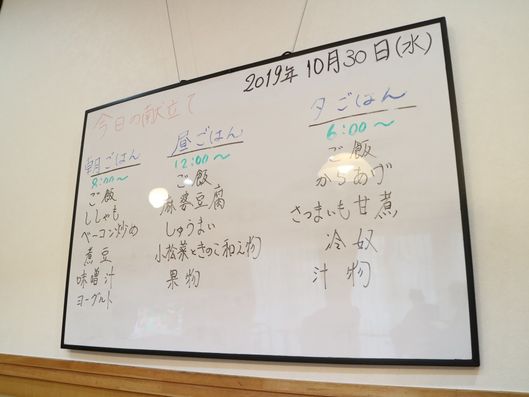 2019年 10月30日(水)
今日の献立て
朝ごはん
8:00〜
ご飯
ししゃも
ベーコン炒め
煮豆
味噌汁
ヨーグルト
昼ごはん
12:00〜
ご飯
麻婆豆腐
しゅうまい
小松菜ときのこ和え物
果物
夕ごはん
6:00〜
ご飯
からあげ
さつまいも甘煮
冷奴
汁物